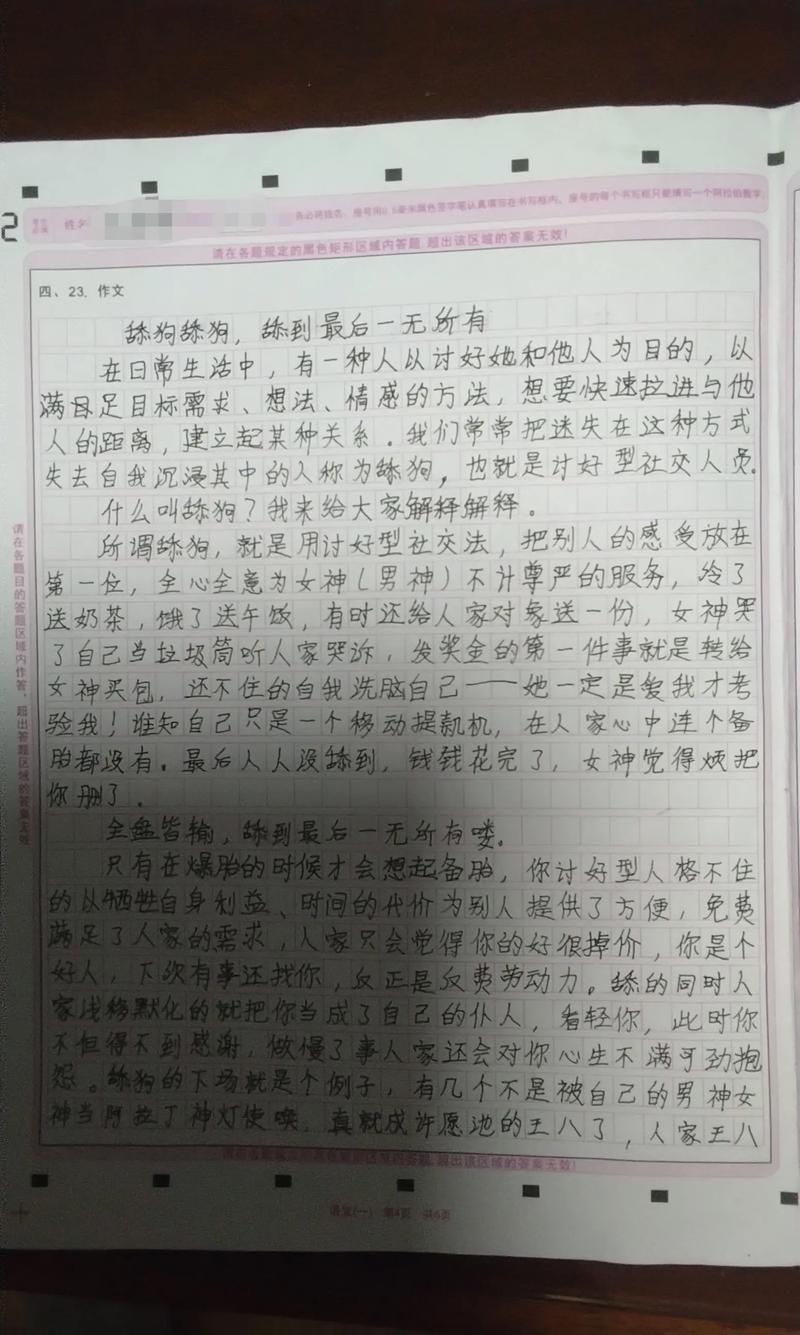 2
姓名
务必将姓名、座号用0.5毫米黑色签字笔认真填写在书写框内。座号的每个书写框只能填写一个阿拉伯数字。
请在各题规定的黑色矩形区域内答题,超出该区域的答案无效!
四、23.作文
舔狗舔狗，舔到最后一无所有
在日常生活中，有一种人以讨好她和他人为目的，以
满足目标需求、想法、情感的方法，想要快速拉进与他
人的距离，建立起某种关系。我们常常把迷失在这种方式
失去自我沉浸其中的人称为舔狗，也就是讨好型社交人员.
什么叫舔狗？我来给大家解释解释。
所谓舔狗，就是用讨好型社交法，把别人的感受放在
第一位，全心全意为女神（男神）不计尊严的服务，冷了
送奶茶，饿了送午饭，有时还给人家对象送一份，女神哭
了自己当垃圾筒听人家哭诉，发奖金的第一件事就是转给
女神买包，还不住的自我洗脑自己——她一定是爱我才考
验我！谁知自己只是一个移动提款机，在人家心中连个备
胎都没有。最后人人没舔到，钱钱花完了，女神觉得烦把
你删了.
全盘皆输，舔到最后一无所有喽.
只有在爆胎的时候才会想起备胎，你讨好型人格不住
的以牺牲自身利益、时间的代价为别人提供了方便，免费
满足了人家的需求，人家只会觉得你的好很掉价，你是个
好人，下次有事还找你，反正是反费劳动力。舔的同时人
家浅移默化的就把你当成了自己的仆人，看轻你，此时你
不但得不到感谢，做慢了事人家还会对你心生不满可劲抱
怨。舔狗的下场就是个例子，有几个不是被自己的男神女
神当阿拉丁神灯使唤，真就成许愿池的王八了，人家王八
请在各题规定的黑色矩形区域内答题,超出该区域的答案无效!
语文(一) 第4页 共6页
请在各题目的答题区域内作答，超出答题区域的答案无效